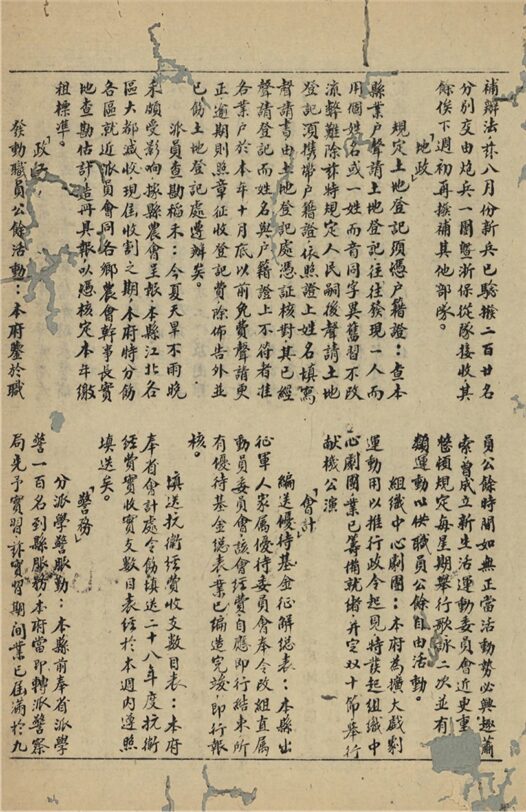 補辦法茲八月份新兵已驗撥二百廿名
分別交由炮兵一團暨浙保從隊接收其
餘俟下週初再撥補其他部隊。
「地政」
規定土地登記須憑户籍證：查本
縣業户聲請土地登記往往發現一人而
用個姓名或一姓而音同字異舊習不改
流弊難除茲特規定人民嗣後聲請土地
登記須携帶户籍證依照證上姓名填寫
聲請書由土地登記處憑証核對其已經
聲請登記而姓名與户籍證上不符者准
各業户於本年十月底以前免費聲請更
正逾期則照章征收登記費除佈告外並
已飭土地登記處遵辦矣。
派員查勘稻禾：今夏天旱不雨晚
禾頗受影响據縣農會呈報本縣江北各
區大都减收現屆收割之期本府特分飭
各區就近派員會同各鄉農會幹事長實
地查勘估計造冊具報以憑核定本年繳
租標準。
「政務」
發動職員公餘活動：本府鑒於職
員公餘時間如無正當活動勢必興趣蕭
索曾成立新生活運動委員會近更重
整頓規定每星期舉行歌詠二次並有
類運動以供職員公餘自由活動。
組織中心劇團：本府為擴大戲劇
運動用以推行政令起見特發起組織中
心劇團業已籌備就緒并定双十節舉行
献機公演。
「會計」
編送優待基金征解總表：本縣出
征軍人家屬優待委員會奉令改組直属
動員委員會該會經費自應即行結束所
有優待基金總表業已編造完竣即行報
核。
填送抗衛經費收支數目表：本府
奉省會計處令飭填送二十八年度抗衛
經費實收實支數目表經於本週内遵照
填送矣。
「警務」
分派學警服勤：本縣前奉省派學
警一百名到縣服務本府當即轉派警察
局先予實習茲實習期間業已屆滿於九